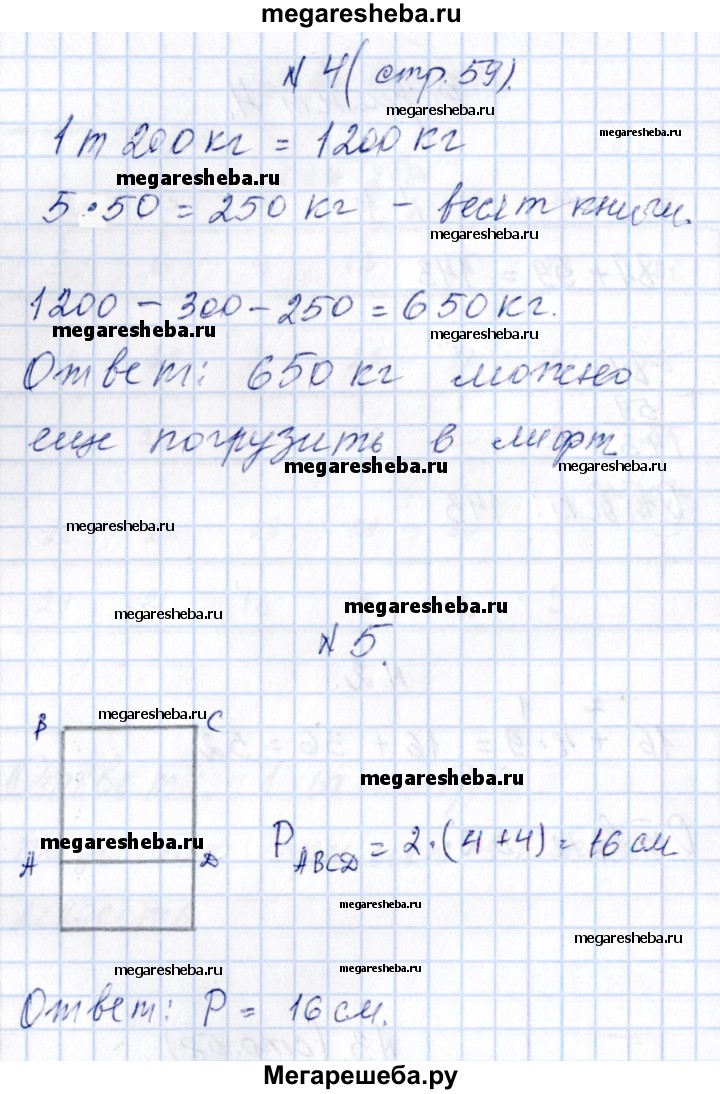 megaresheba.ru
N 4 (стр. 59).
megaresheba.ru
1 т 200 кг = 1200 кг
megaresheba.ru
megaresheba.ru
5 • 50 = 250 кг - весят книги.
megaresheba.ru
1200 - 300 - 250 = 650 кг.
megaresheba.ru
megaresheba.ru
Ответ: 650 кг можно
еще погрузить в лифт
megaresheba.ru
megaresheba.ru
megaresheba.ru
megaresheba.ru
megaresheba.ru
N 5.
B megaresheba.ru C
megaresheba.ru
megaresheba.ru
A D P ABCD = 2 • (4 + 4) = 16 см
megaresheba.ru
megaresheba.ru
megaresheba.ru
megaresheba.ru
Ответ: P = 16 см.
Мегарешеба.ру